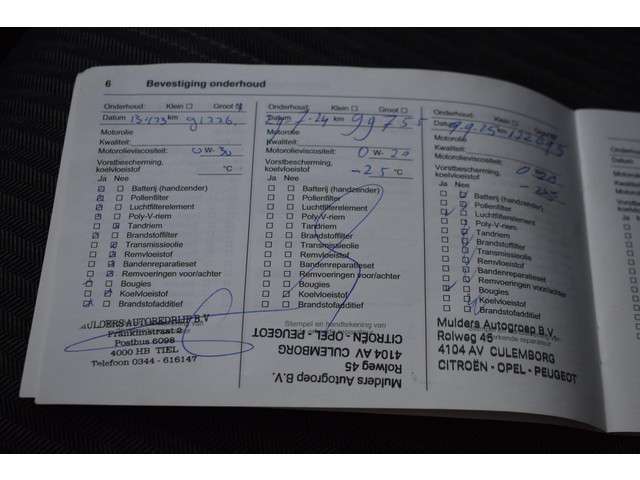 6 Bevestiging onderhoud
Onderhoud: Klein ☐ Groot
Datum 13-1-23 km 91226
Motorolie
Kwaliteit:
Motorolieviscositeit: 0 W- 30
Vorstbescherming,
koelvloeistof °C
Ja Nee
Batterij (handzender)
Pollenfilter
Luchtfilterelement
Poly-V-riem
Tandriem
Brandstoffilter
Transmissieolie
Remvloeistof
Bandenreparatieset
Remvoeringen voor/achter
Bougies
Koelvloeistof
Brandstofadditief
MULDERS AUTOBEDRIJF B.V.
Franklinstraat 2
Postbus 6098
4000 HB TIEL
Telefoon 0344 - 616147
Onderhoud: Klein ☐ Groot ☐
Datum 7-24 km 99755
Motorolie
Kwaliteit:
Motorolieviscositeit: 0 W- 20
Vorstbescherming,
koelvloeistof -25 °C
Ja Nee
Batterij (handzender)
Pollenfilter
Luchtfilterelement
Poly-V-riem
Tandriem
Brandstoffilter
Transmissieolie
Remvloeistof
Bandenreparatieset
Remvoeringen voor/achter
Bougies
Koelvloeistof
Brandstofadditief
Stempel en handtekening van
Mulders Autogroep B.V.
Rolweg 45
4104 AV CULEMBORG
CITROËN - OPEL - PEUGEOT
Onderhoud: Klein ☐
Datum
Motorolie
Kwaliteit:
Motorolieviscositeit:
Vorstbescherming,
koelvloeistof
Ja Nee
Batterij (handzender)
Pollenfilter
Luchtfilterelement
Poly-V-riem
Tandriem
Brandstoffilter
Transmissieolie
Remvloeistof
Bandenreparatieset
Remvoeringen voor/achter
Bougies
Koelvloeistof
Brandstofadditief
Mulders Autogroep B.V.
Rolweg 45
4104 AV CULEMBORG
CITROËN - OPEL - PEUGEOT